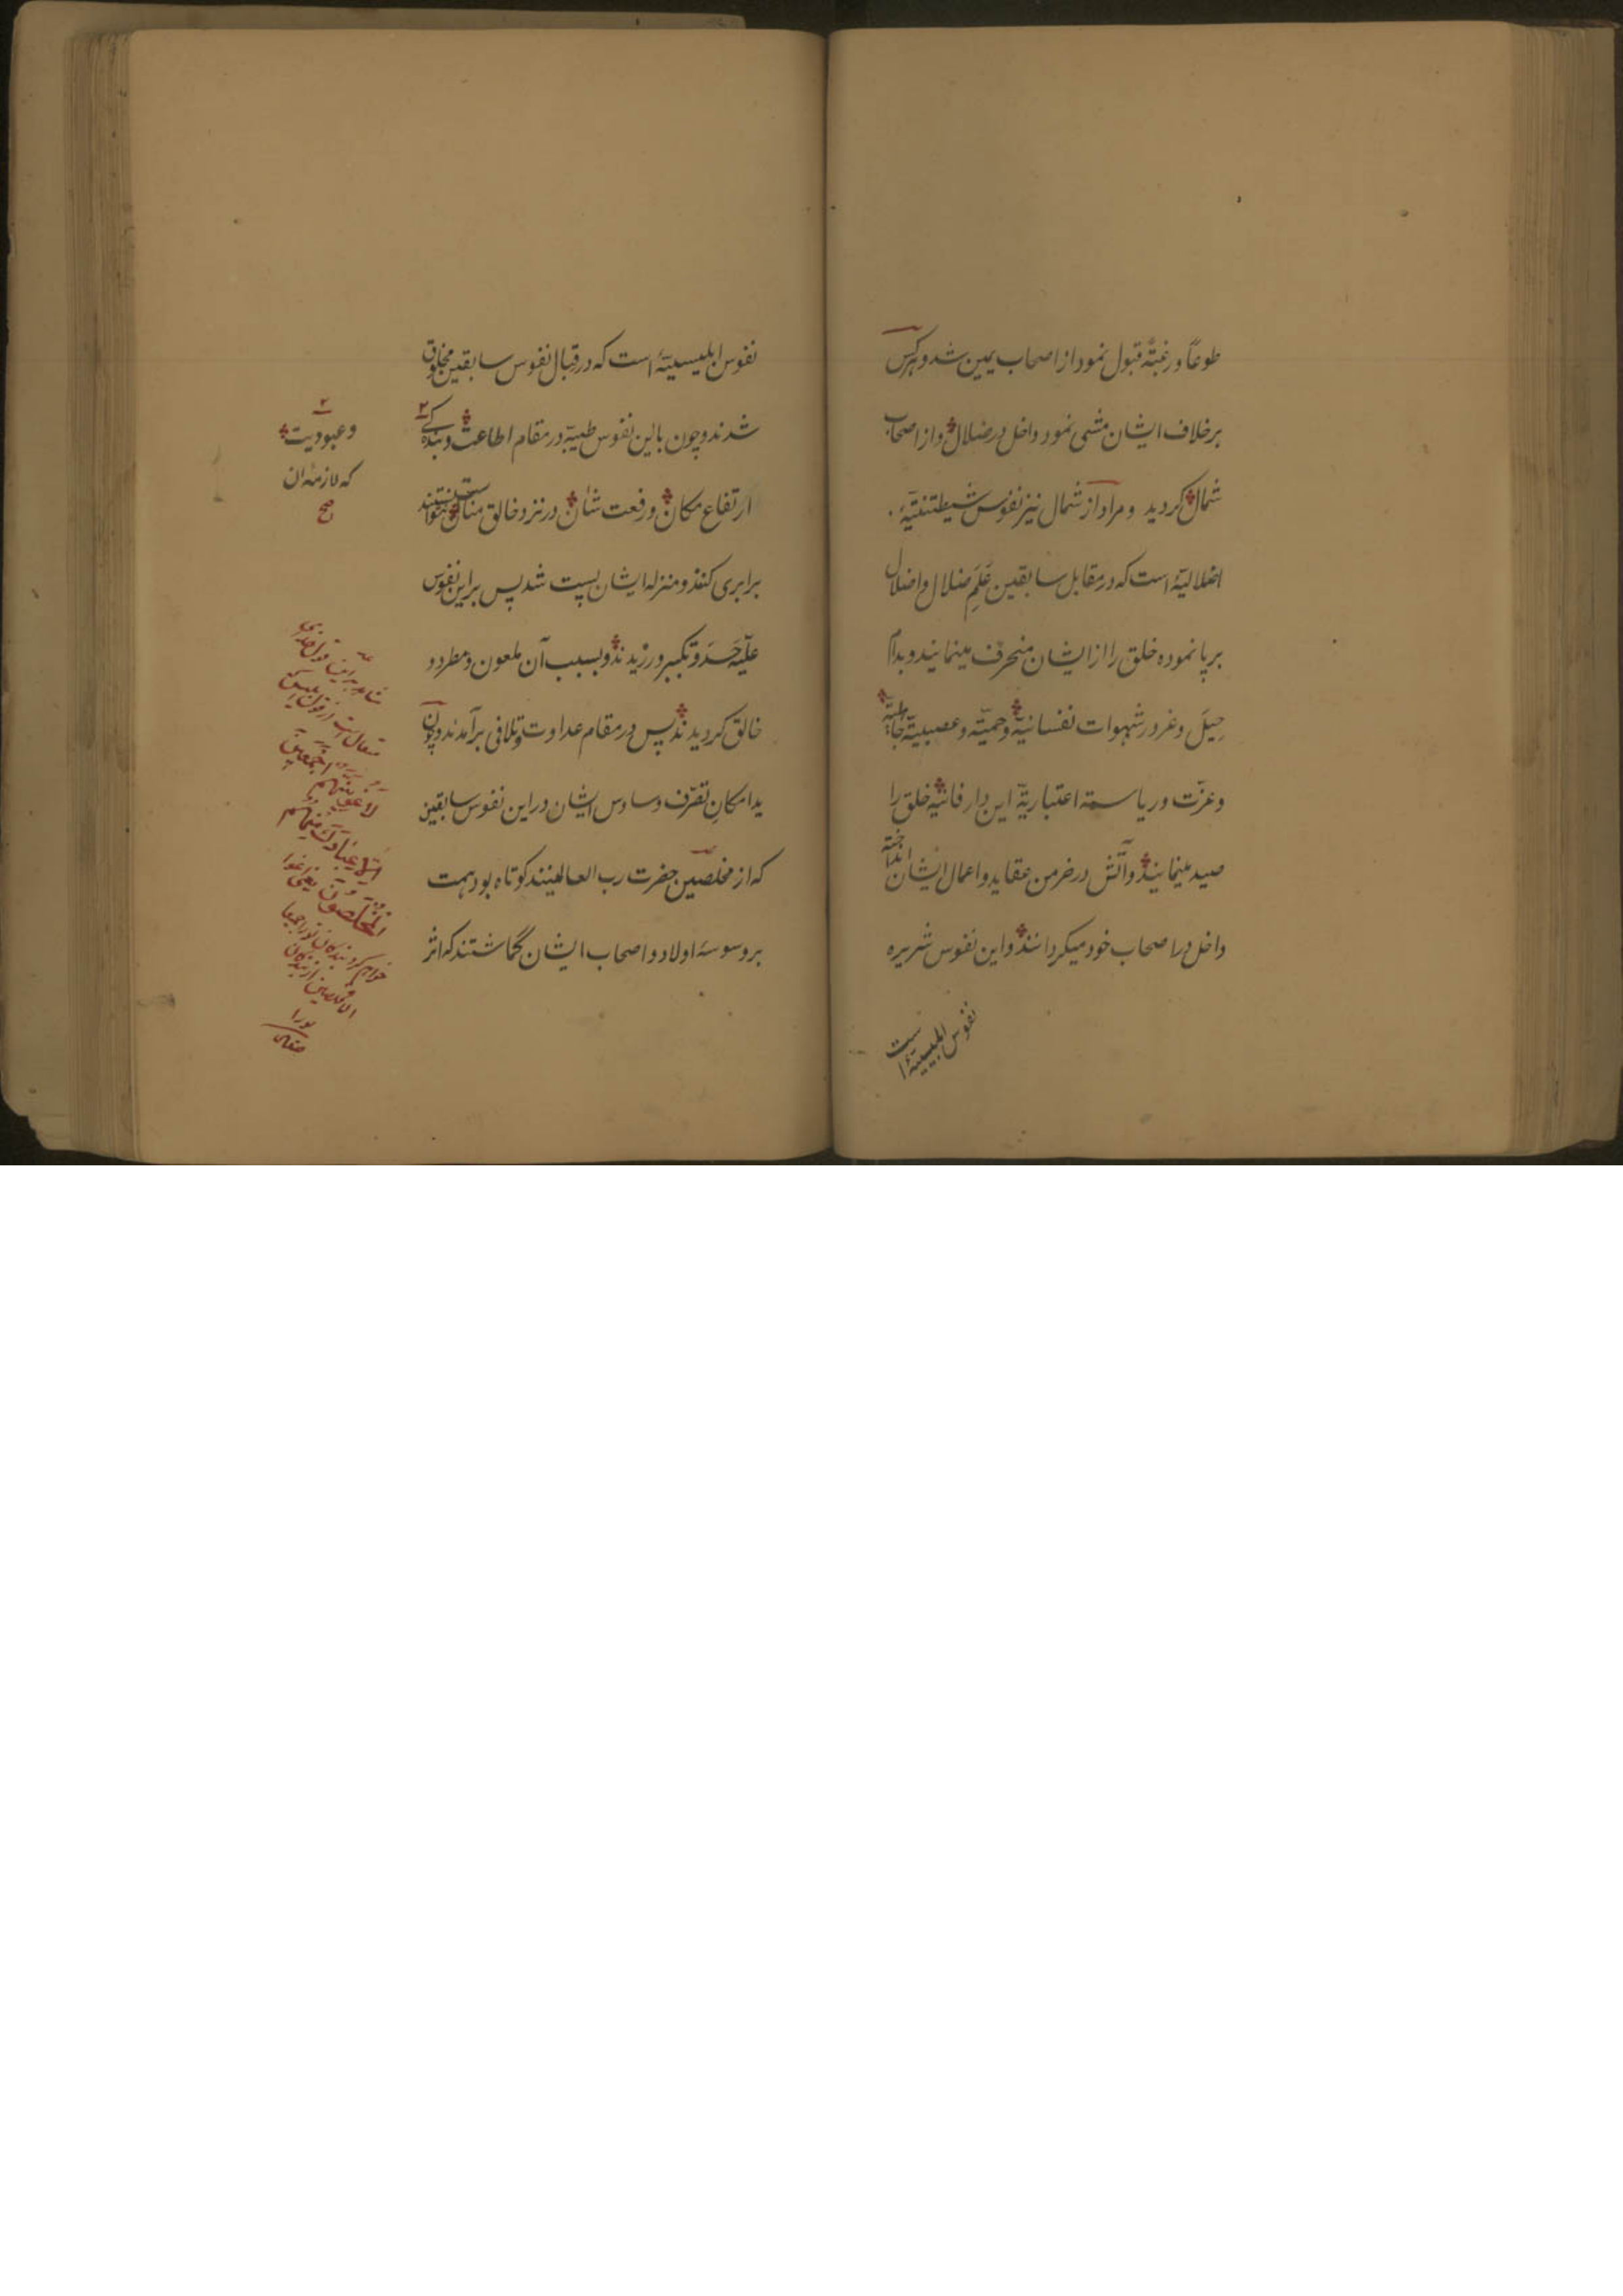 طوعًا و رغبةً قبول نمود از اصحاب یمین شد و هرکس
برخلاف ایشان مشی نمود داخل در ضلال و از اصحاب
شمال کردید و مراد از شمال نیز نفوس شیطنتیّهٔ
اضلالیّهٔ است که در مقابل سابقین عَلَمِ ضلال و اضلال
برپا نموده خلق را از ایشان منحرف مینمایند و بدام
حِیَل و غرور شهوات نفسانیّة و حمیّة و عصبیة جاهلیّة
و عزّت و ریاسة اعتباریّة این دار فانیّه خلق را
صید مینمایند و آتش در خرمن عقاید و اعمال ایشان انداخته
داخل در اصحاب خود میکردانند و این نفوس شریره
نفوس ابلیسیّهٔ است
نفوس ابلیسیّهٔ است که در قبال نفوس سابقین مخلوق
شدند و چون با این نفوس طیبّه در مقام اطاعت و بندکی
و عبودیت
که لازمهٔ ان
صح
ارتفاع مکان و رفعت شان در نزد خالق منان نتوانستند
برابری کنند و منزله ایشان پست شد پس بر این نفوس
علیّه حَسَد و تکبر ورزیدند و بسبب آن ملعون و مطرود
خالق کردیدند پس در مقام عداوت و تلافی برآمدند و چون
ید امکانِ تصّرف وساوس ایشان در این نفوس سابقین
که از مخلصین حضرت رب العالمینند کوتاه بود همت
بر وسوسهٔ اولاد و اصحاب ایشان گماشتند که اثر
شاهد بر این قول خدای
متعال است از قول ابلیس که
لَاُغْوِیَنَّهُم اَجْمَعینَ
اِلّا عِبٰادَکَ مِنْهُم
الْمُخْلَصینَ یعنی اغوا
خواهم کرد بندکان تو را جمیعا
الا مخلصین از بندکان
تو را